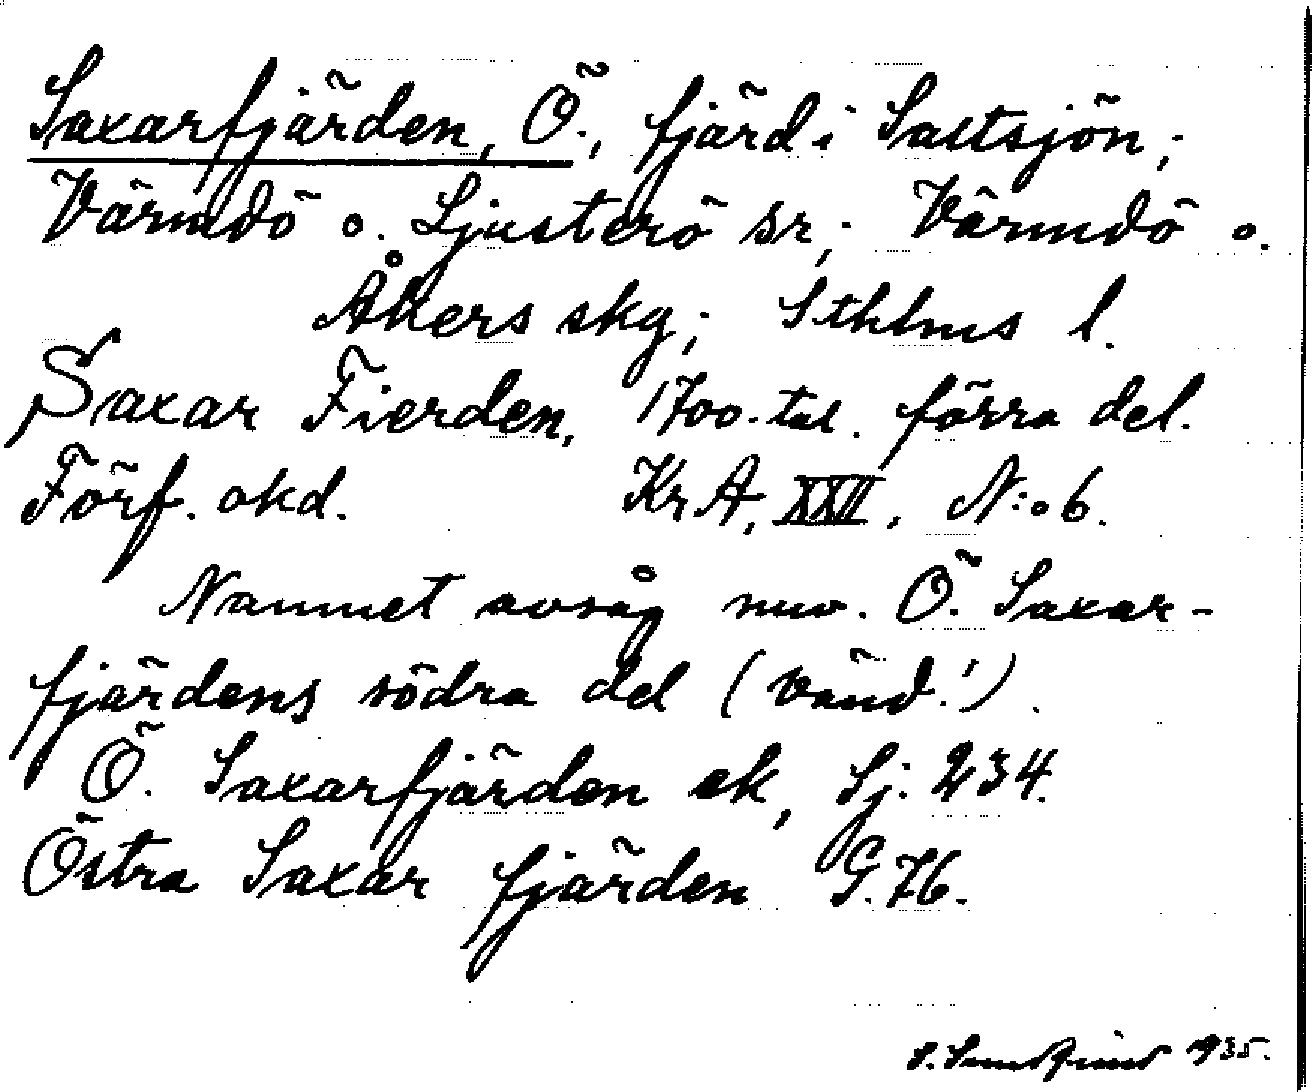 Saxarfjärden, Ö., fjärd i Saltsjön;
Värmdö o. Ljusterö sr; Värmdö o.
Åkers skg; Sthlms l.
Saxar Fierden, 1700-tal. förra del.
Förf. okd. KrA, XXII, N:o 6.
Namnet avsåg nuv. Ö. Saxar-
fjärdens södra del (vänd!).
Ö. Saxarfjärden ek, Sj. 234.
Östra Saxar fjärden G. 76.
1935.